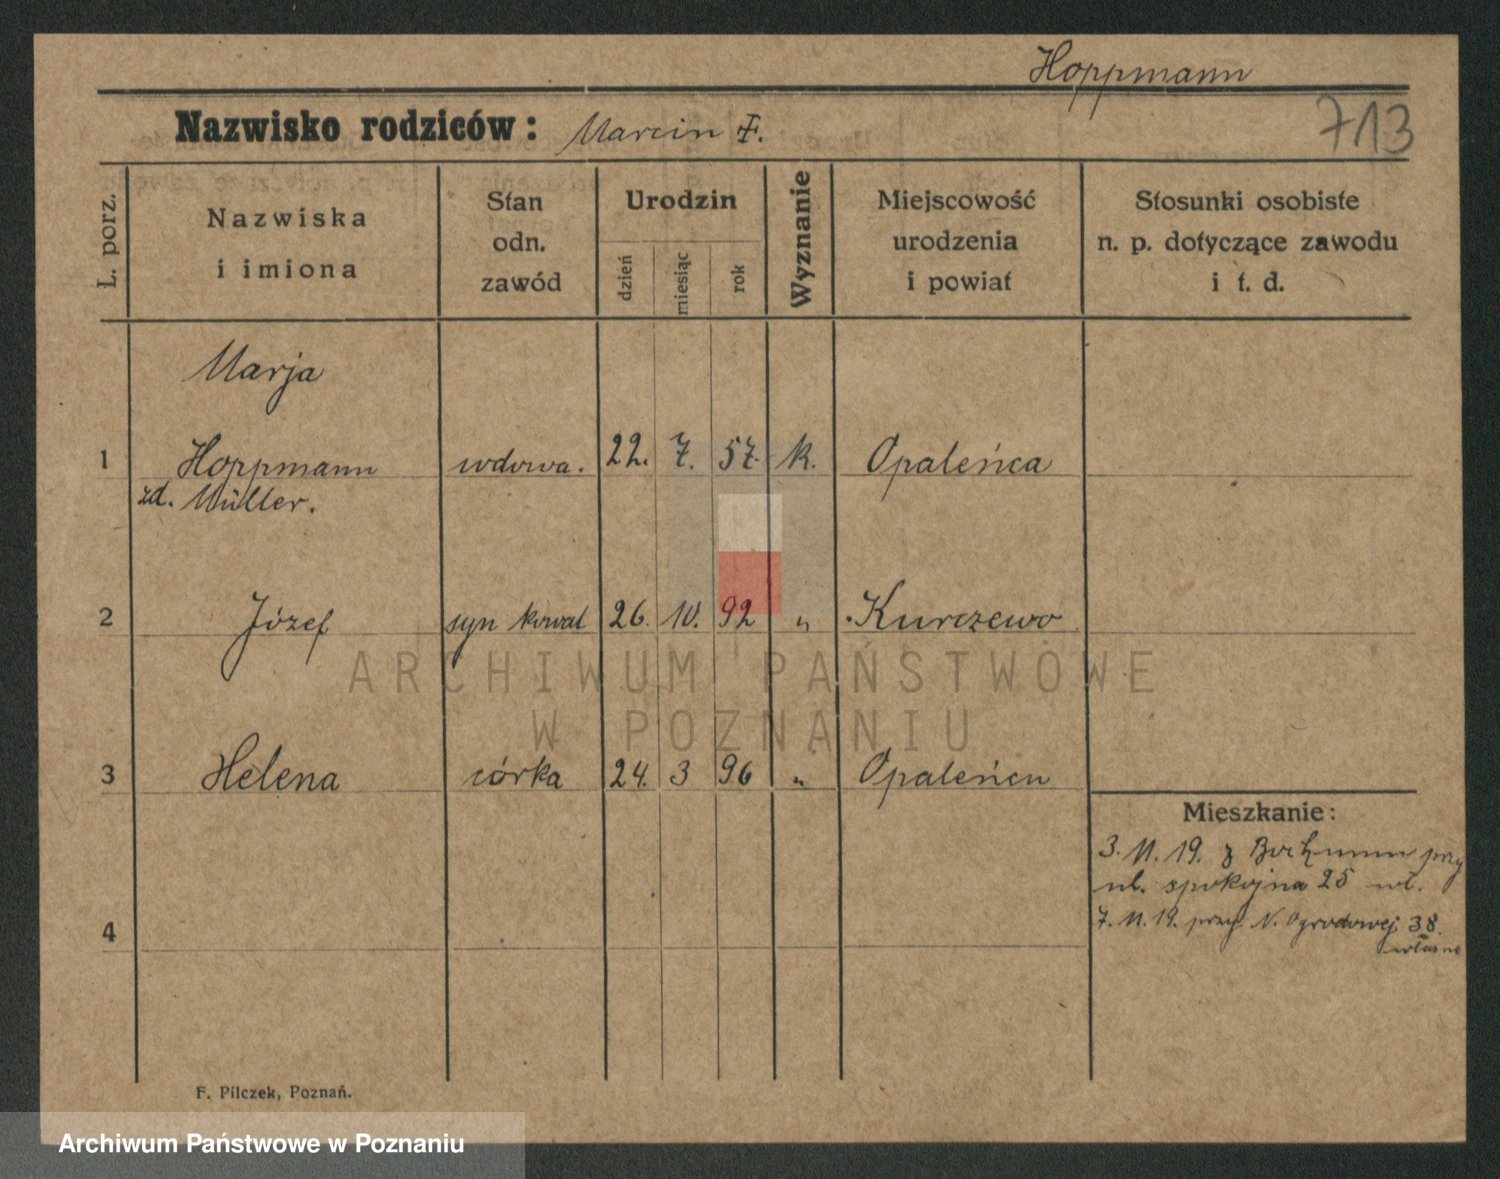 Hoppmann
Nazwisko rodziców: Marcin F.
713
L. porz.
Nazwiska
i imiona
Stan
odn.
zawód
Urodzin
dzień
miesiąc
rok
Wyznanie
Miejscowość
urodzenia
i powiat
Stosunki osobiste
n. p. dotyczące zawodu
i t. d.
Marja
1 Hoppmann wdowa. 22. 7. 57. k. Opaleńca
zd. Müller.
2 Józef syn kowal 26. 10. 92 " Kurczewo
ARCHIWUM PAŃSTWOWE
W POZNANIU
3 Helena córka 24. 3 96 " Opaleńcu
Mieszkanie:
3. 11. 19. z Bochumu przy
ul. spokojna 25 wł.
7. 11. 19. przy N. Ogrodowej 38.
własne
4
F. Pilczek, Poznań.
Archiwum Państwowe w Poznaniu